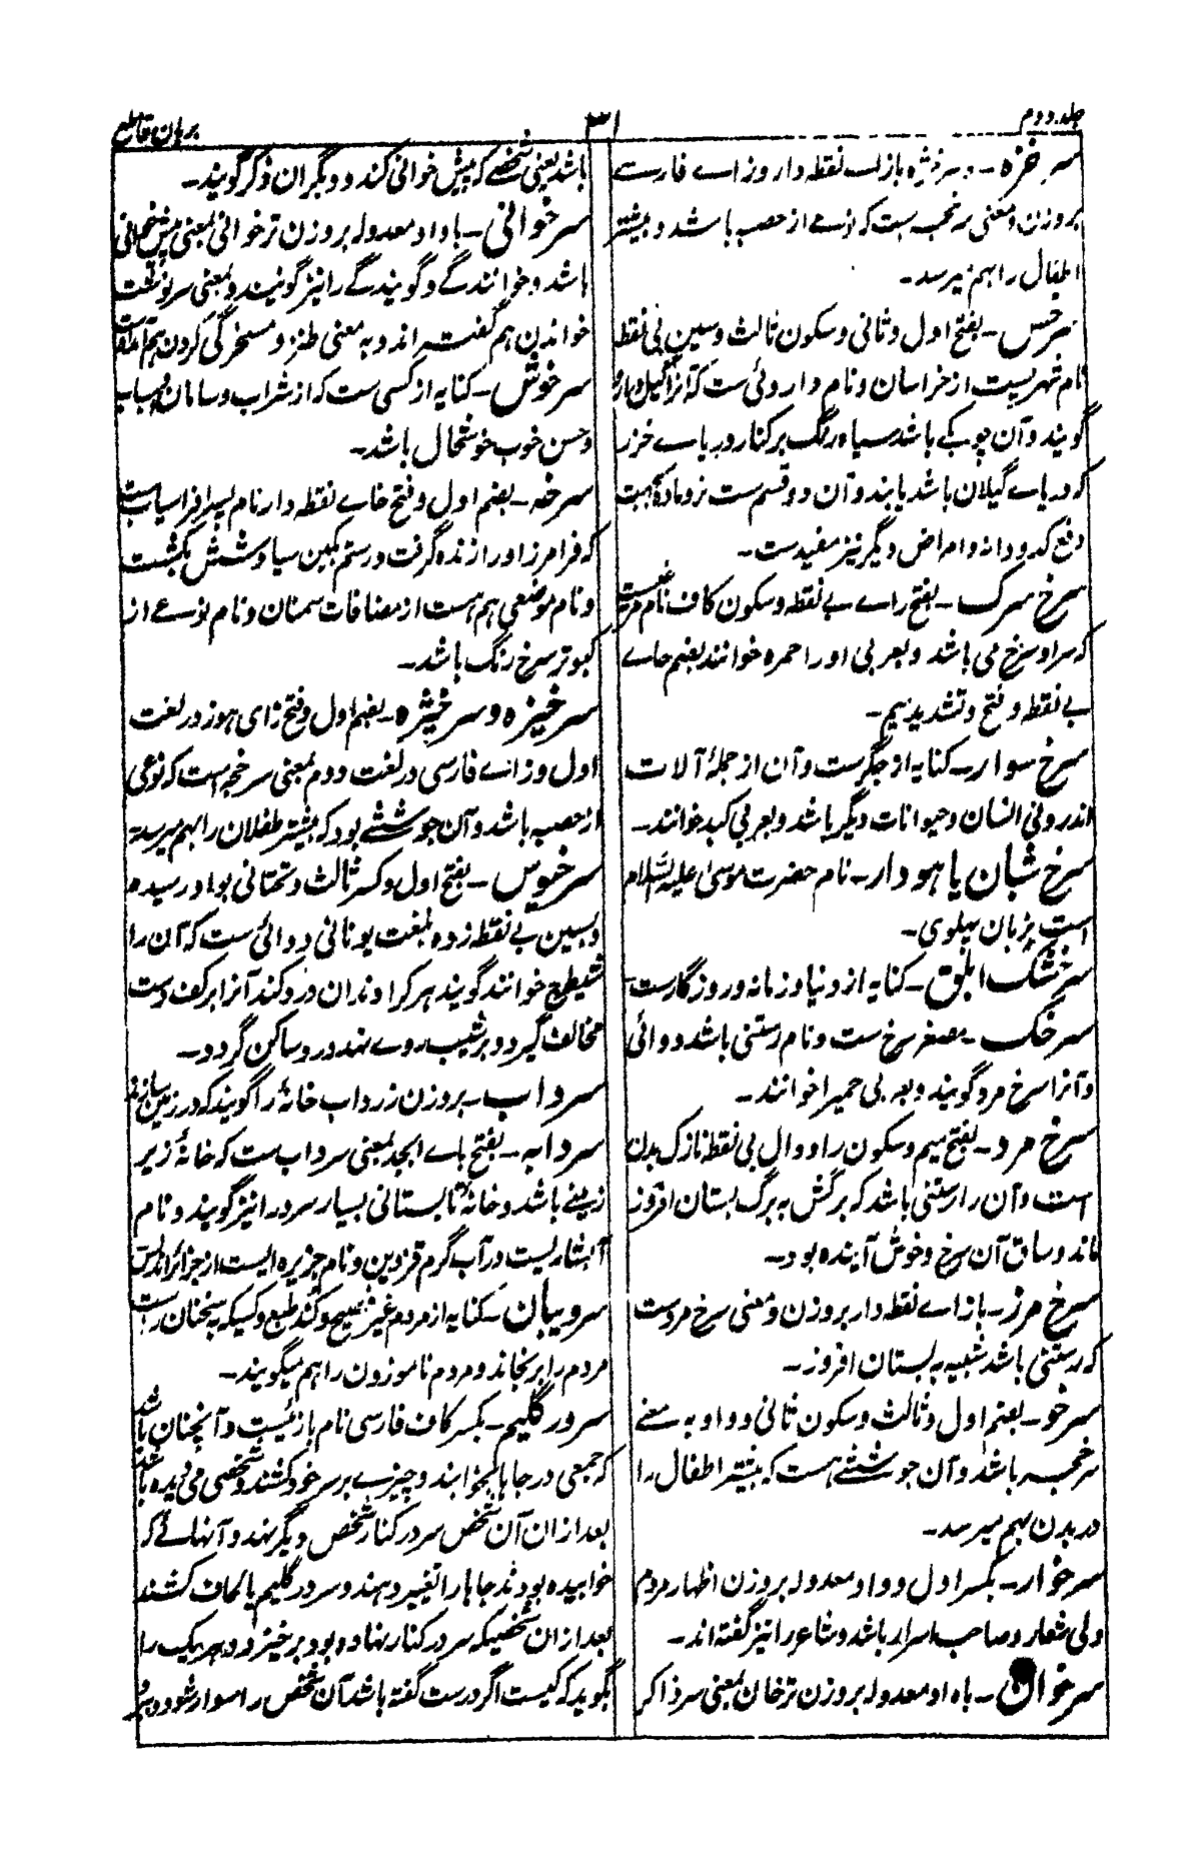 جلد دوم
۳۱
برهان قاطع
سرخزه - و سرخژه بازاے نقطه دار و زاے فارسے
بروزن و معنی سرخجه است که نوعے از حصبه باشد و بیشتر
اطفال را بهم میرسد -
سرخس - بفتح اول و ثانی و سکون ثالث و سین بی نقطه
نام شهریست از خراسان و نام داروئی ست که آنرا گیل دارو
گویند و آن چوبکے باشد سیاه رنگ بر کنار دریاے خزر
که دریاے گیلان باشد یابند و آن دو قسم ست نر و ماده بجهت
دفع کدودانه و امراض دیگر نیز مفیدست -
سرخ سرک - بفتح راے بے نقطه و سکون کاف نام مرغیست
که سر او سرخ می باشد و بعربی او را حمره خوانند بضم حاے
بے نقطه و فتح و تشدید میم -
سرخ سوار - کنایه از جگرست و آن از جملهٔ آلات
اندرونی انسان و حیوانات دیگر باشد و بعربی کبد خوانند -
سرخ شبان یاهودار - نام حضرت موسیٰ علیه السّلام
است بزبان پهلوی -
سرخشک ابلق - کنایه از دنیا و زمانه و روزگارست
سرخک - مصغر سرخ ست و نام رستنی باشد دوائی
و آنرا سرخ مرد گویند و بعربی حمیرا خوانند -
سرخ مرد - بفتح میم و سکون را و دال بی نقطه نازک بدن
است و آن را رستنی باشد که برگش به برگ بستان افروز
ماند و ساق آن سرخ و خوش آینده بود -
سرخ مرز - بازاے نقطه دار بروزن و معنی سرخ مردست
که رستنی باشد شبیه به بستان افروز -
سرخو - بضم اول و ثالث و سکون ثانی و واو به معنے
سرخجه باشد و آن جوششے هست که بیشتر اطفال را
در بدن بهم میرسد -
سرخوار - بکسر اول و واو معدوله بروزن اظهار مردم
ولی شعار و صاحب اسرار باشد و شاعر را نیز گفته اند -
سرخوان - باواو معدوله بروزن ترخان بمعنی سرذاکر
باشد یعنی شخصے که پیش خوانی کند و دیگران ذکر گویند -
سرخوانی - باواو معدوله بروزن ترخوانی بمعنی پیش خوانی
باشد و خوانندگے و گویندگے را نیز گویند و بمعنی سرنوشت
خواندن هم گفته اند و به معنی طنز و مسخرگی کردن هم آمده است
سرخوش - کنایه از کسی ست که از شراب و سامان و اسباب
و حسن خوب خوشحال باشد -
سرخه - بضم اول و فتح خاے نقطه دار نام پسر افراسیاب ست
که فرامرز او را زنده گرفت و رستم بکین سیاوشش بکشت
و نام موضعی هم هست از مضافات سمنان و نام نوعے از
کبوتر سرخ رنگ باشد -
سرخیزه و سرخیژه - بضم اول و فتح زای هوز در لغت
اول و زاے فارسی در لغت دوم بمعنی سرخجه است که نوعی
از حصبه باشد و آن جوششے بود که بیشتر طفلان را بهم میرسد
سرخیوس - بفتح اول و کسر ثالث و تحتانی بواو رسیده
و بسین بے نقطه زده بلغت یونانی دوائی ست که آن را
شیطرج خوانند گویند هر کرا دندان درد کند آنرا بر کف دست
مخالف گیرد و بر شیب روے نهد درد ساکن گردد -
سرداب - بروزن زرداب خانهٔ را گویند که در زمین سازند
سردابه - بفتح باے ابجد بمعنی سرداب ست که خانهٔ زیر
زمینے باشد و خانهٔ تابستانی بسیار سرد را نیز گویند و نام
آبشاریست در آب گرم قزوین و نام جزیره ایست از جزائر اندلس
سردبیان - کنایه از مردم غیر فصیح و کند طبع و کسیکه به سخنان راست
مردم را برنجاند و مردم ناموزون را هم میگویند -
سردرگلیم - بکسر کاف فارسی نام بازئیست و آنچنان باشد
که جمعی در جاها بخوابند و چیزے بر سر خود کشند و شخصی می دیده باشد
بعد ازان آن شخص سر در کنار شخص دیگر نهد و آنهائے که
خوابیده بودند جاها را تغییر دهند و سر در گلیم یا لحاف کشند
بعد ازان شخصیکه سر در کنار نهاده بود برخیزد و هر یک را
بگوید که کیست اگر درست گفته باشد آن شخص را سوار شود و